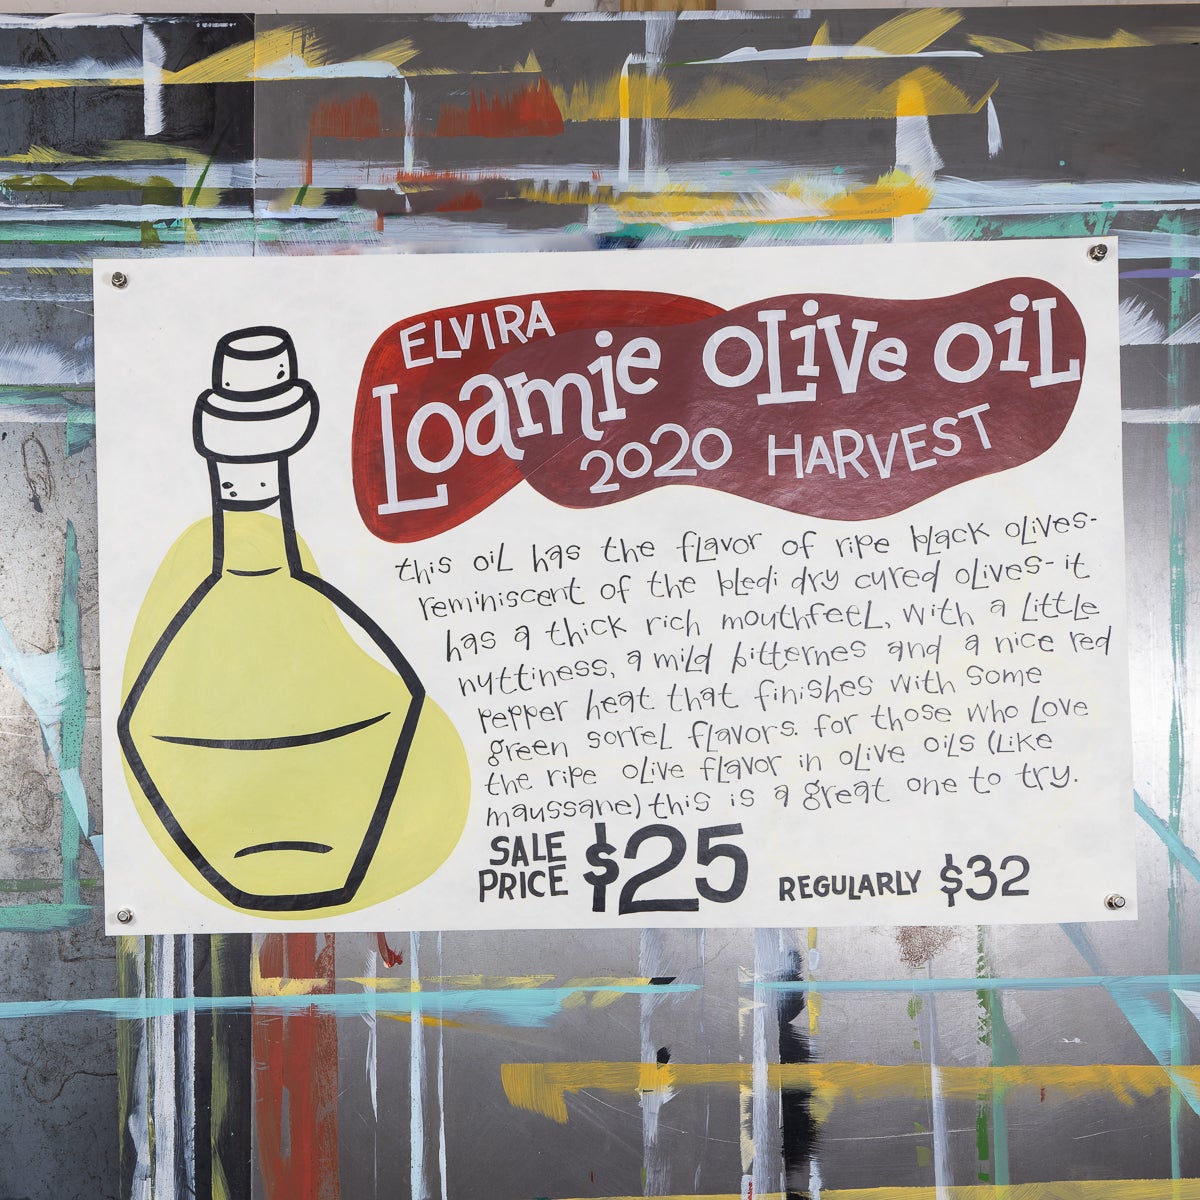 ELVIRA
Loamie OLiVe OiL
2020 HARVEST
this oil has the flavor of ripe black olives-
reminiscent of the bledi dry cured olives- it
has a thick rich mouthfeel, with a little
nuttiness, a mild bitternes and a nice red
pepper heat that finishes with some
green sorrel flavors. for those who love
the ripe olive flavor in olive oils (like
maussane) this is a great one to try.
SALE
PRICE $25
REGULARLY $32